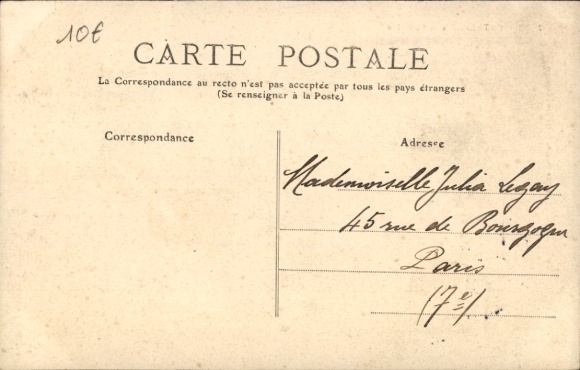 10€
CARTE POSTALE
La Correspondance au recto n'est pas acceptée par tous les pays étrangers
(Se renseigner à la Poste)
Correspondance
Adresse
Mademoiselle Julia Legay
45 rue de Bourgogne
Paris
(7e)